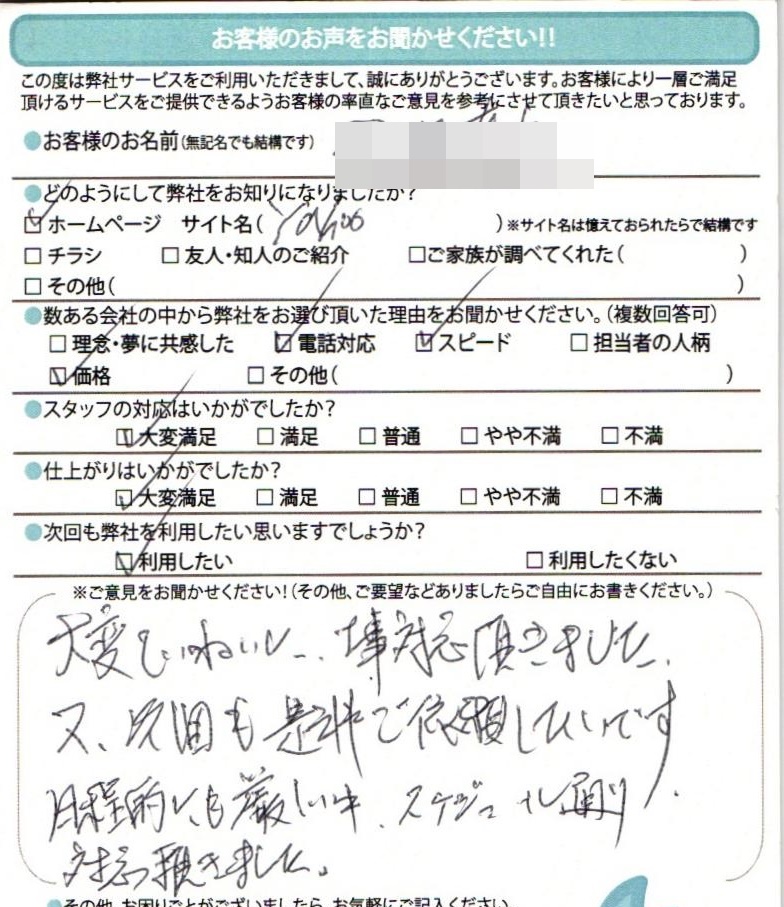 お客様のお声をお聞かせください!!
この度は弊社サービスをご利用いただきまして、誠にありがとうございます。お客様により一層ご満足
頂けるサービスをご提供できるようお客様の率直なご意見を参考にさせて頂きたいと思っております。
●お客様のお名前(無記名でも結構です)
●どのようにして弊社をお知りになりましたか?
☑ホームページ サイト名( Yahoo )※サイト名は憶えておられたらで結構です
□チラシ □友人・知人のご紹介 □ご家族が調べてくれた( )
□その他( )
●数ある会社の中から弊社をお選び頂いた理由をお聞かせください。(複数回答可)
□理念・夢に共感した ☑電話対応 ☑スピード □担当者の人柄
☑価格 □その他( )
●スタッフの対応はいかがでしたか?
☑大変満足 □満足 □普通 □やや不満 □不満
●仕上がりはいかがでしたか?
☑大変満足 □満足 □普通 □やや不満 □不満
●次回も弊社を利用したい思いますでしょうか?
☑利用したい □利用したくない
※ご意見をお聞かせください!(その他、ご要望などありましたらご自由にお書きください。)
大変ていねいに、対応頂きました。
又、次回も是非ご依頼したいです
日程的にも厳しい中、スケジュール通り
対応頂きました。
●その他、お困りごとがございましたら、お気軽にご記入ください